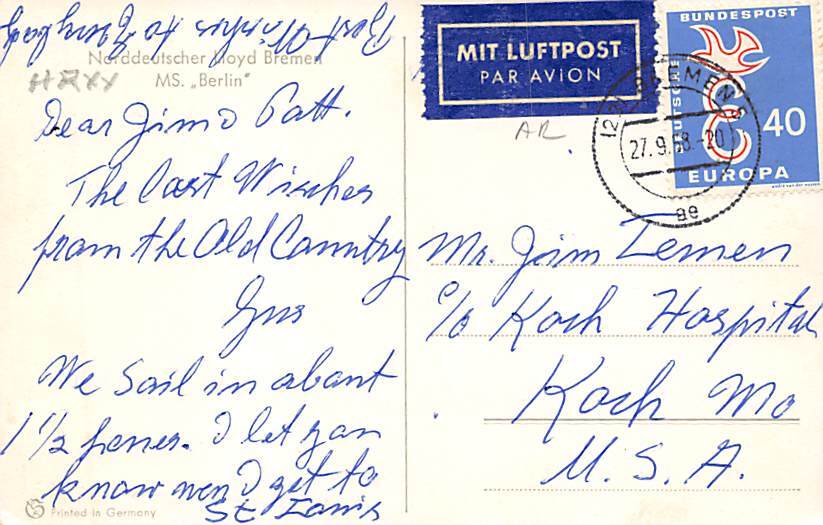 Best Wisches to Everybody
Norddeutscher Lloyd Bremen
MS. „Berlin"
Dear Jim & Patt.
The last Wisches
from the Old Conntry
Gus
We Sail in abant
1 1/2 haner. I let yan
know wen I get to
St Lanis
Printed in Germany
MIT LUFTPOST
PAR AVION
AR
DEUTSCHE
BUNDESPOST
40
EUROPA
BREMEN 5
27.9.58.-20
ae
Mr. Jim Lemen
c/o Koch Hospital
Koch Mo
U. S. A.